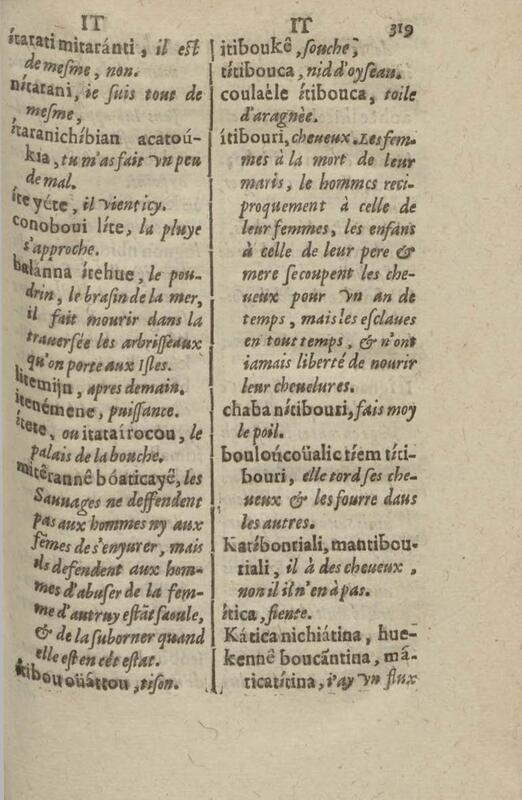 IT
ítarati mitaránti, il est
de mesme, non.
nítarani, ie suis tout de
mesme,
ítaranichíbian acatoú-
kia, tu m'as fait vn peu
de mal.
íte yéte, il vient icy.
conoboui líte, la pluye
s'approche.
balánna ítehue, le pou-
drin, le brasin de la mer,
il fait mourir dans la
trauersée les arbrisseaux
qu'on porte aux Isles.
litemijn, apres demain.
itenémene, puissance.
ítete, ou itataírocou, le
palais de la bouche.
mitêrannê bóaticayê, les
Sauuages ne deffendent
pas aux hommes ny aux
fẽmes de s'enyurer, mais
ils defendent aux hom-
mes d'abuser de la fem-
me d'autruy estãt saoule,
& de la suborner quand
elle est en cét estat.
itibou oüáttou, tison.
IT 319
itiboukê, souche,
títibouca, nid d'oyseau.
coulaèle ítibouca, toile
d'aragnèe.
ítibouri, cheueux. Les fem-
mes à la mort de leur
maris, le hommes reci-
proquement à celle de
leur femmes, les enfans
à celle de leur pere &
mere se coupent les che-
ueux pour vn an de
temps, mais les esclaues
en tout temps, & n'ont
iamais liberté de nourir
leur cheuelures.
chaba nítibouri, fais moy
le poil.
bouloúcoüalic tíem títi-
bouri, elle tord ses che-
ueux & les fourre dans
les autres.
Katíbontiali, mantibou-
tiali, il à des cheueux,
non il il n'en à pas.
ítica, fiente.
Kática nichiátina, hue-
kennê boucãntina, má-
ticatítina, i'ay vn flux